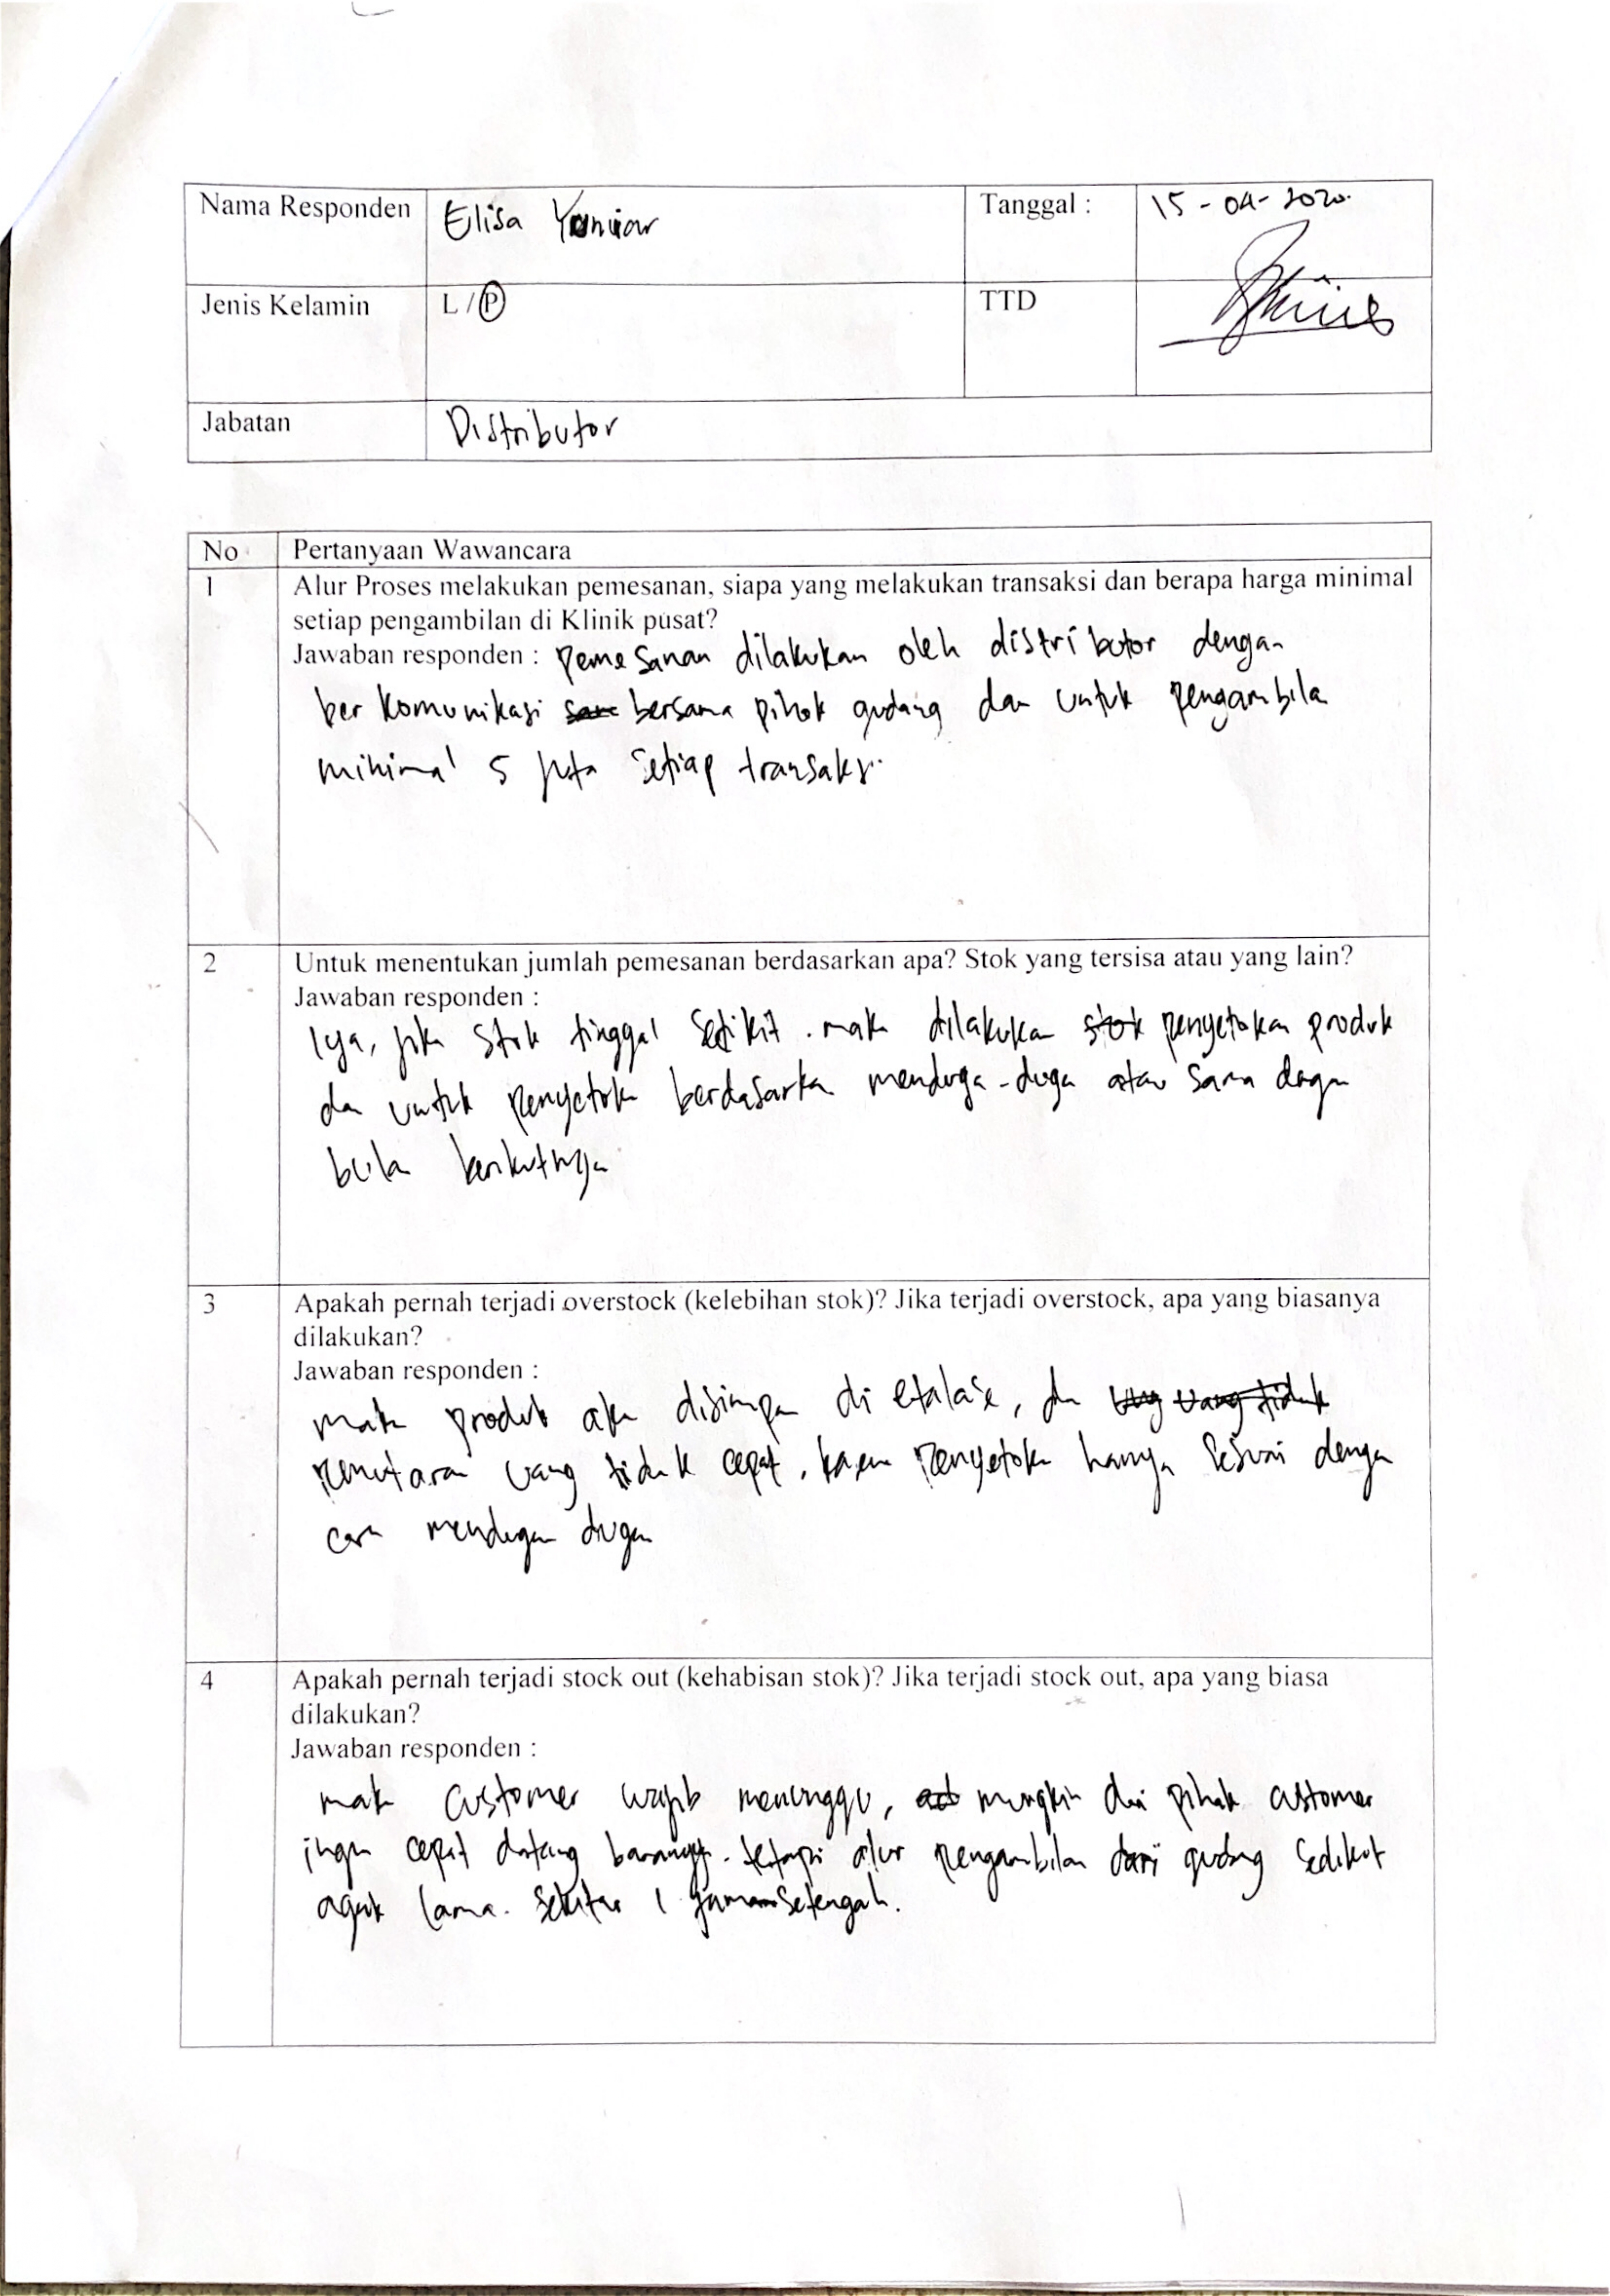 Nama Responden Elisa Yanuar Tanggal : 15-04-2020.
Jenis Kelamin L / P TTD
Jabatan Distributor
No Pertanyaan Wawancara
1 Alur Proses melakukan pemesanan, siapa yang melakukan transaksi dan berapa harga minimal
setiap pengambilan di Klinik pusat?
Jawaban responden : pemesanan dilakukan oleh distributor dengan
berkomunikasi bersama pihak gudang dan untuk pengambila
minimal 5 juta setiap transaksi.
2 Untuk menentukan jumlah pemesanan berdasarkan apa? Stok yang tersisa atau yang lain?
Jawaban responden :
Iya, jika stok tinggal sedikit. maka dilakukan stok penyetokan produk
dan untuk penyetokan berdasarkan menduga-duga atau sama dengan
bulan berikutnya
3 Apakah pernah terjadi overstock (kelebihan stok)? Jika terjadi overstock, apa yang biasanya
dilakukan?
Jawaban responden :
maka produk akan disimpan di etalase, dan uang tidak
pemutaran uang tidak cepat, karena penyetokan hanya sesuai dengan
cara mendugan dugan
4 Apakah pernah terjadi stock out (kehabisan stok)? Jika terjadi stock out, apa yang biasa
dilakukan?
Jawaban responden :
maka customer wajib menunggu, mungkin dari pihak customer
ingin cepat datang barangnya. tetapi alur pengambilan dari gudang sedikit
agak lama. sekitar 1 jaman setengah.